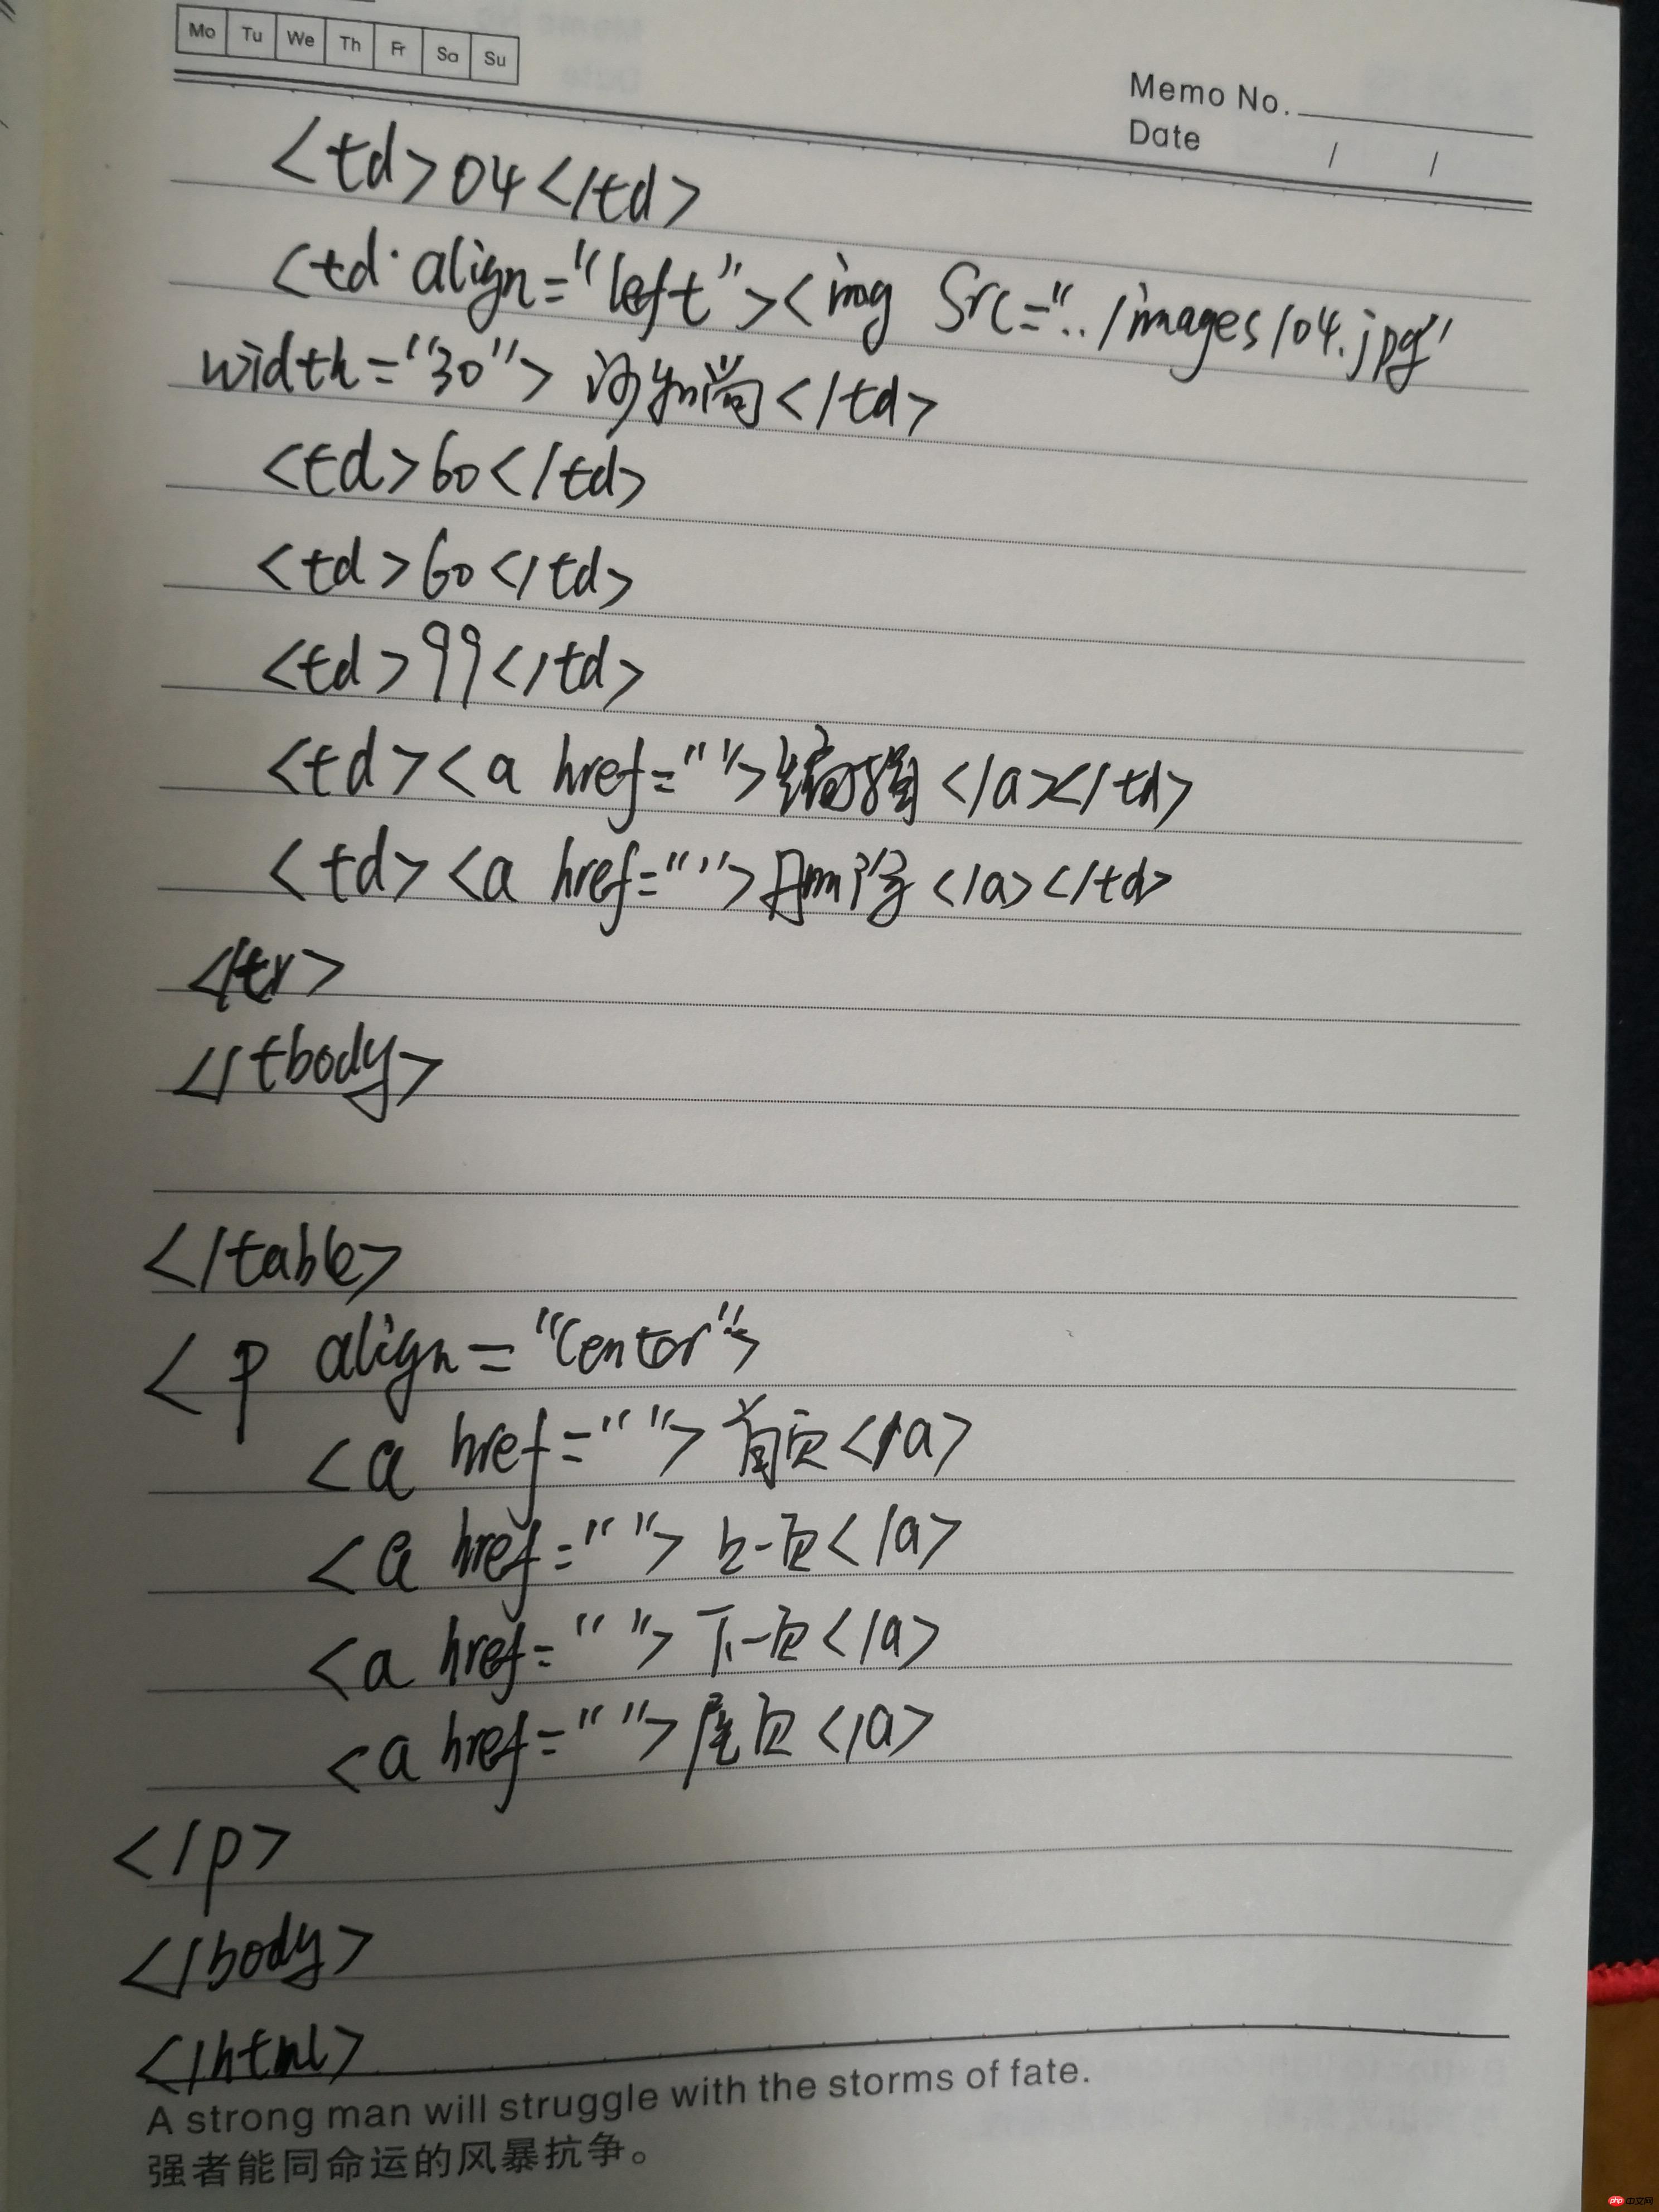 Mo Tu We Th Fr Sa Su
Memo No.
Date / /
<td>04</td>
<td align="left"><img Src="../images/04.jpg"
width="30"> 沙和尚</td>
<td>60</td>
<td>60</td>
<td>99</td>
<td><a href=""></a></td>
<td><a href="">删除</a></td>
</tr>
</tbody>
</table>
<p align="center">
<a href="">首页</a>
<a href="">上一页</a>
<a href="">下一页</a>
<a href="">尾页</a>
</p>
</body>
</html>
A strong man will struggle with the storms of fate.
强者能同命运的风暴抗争。
php 中文网